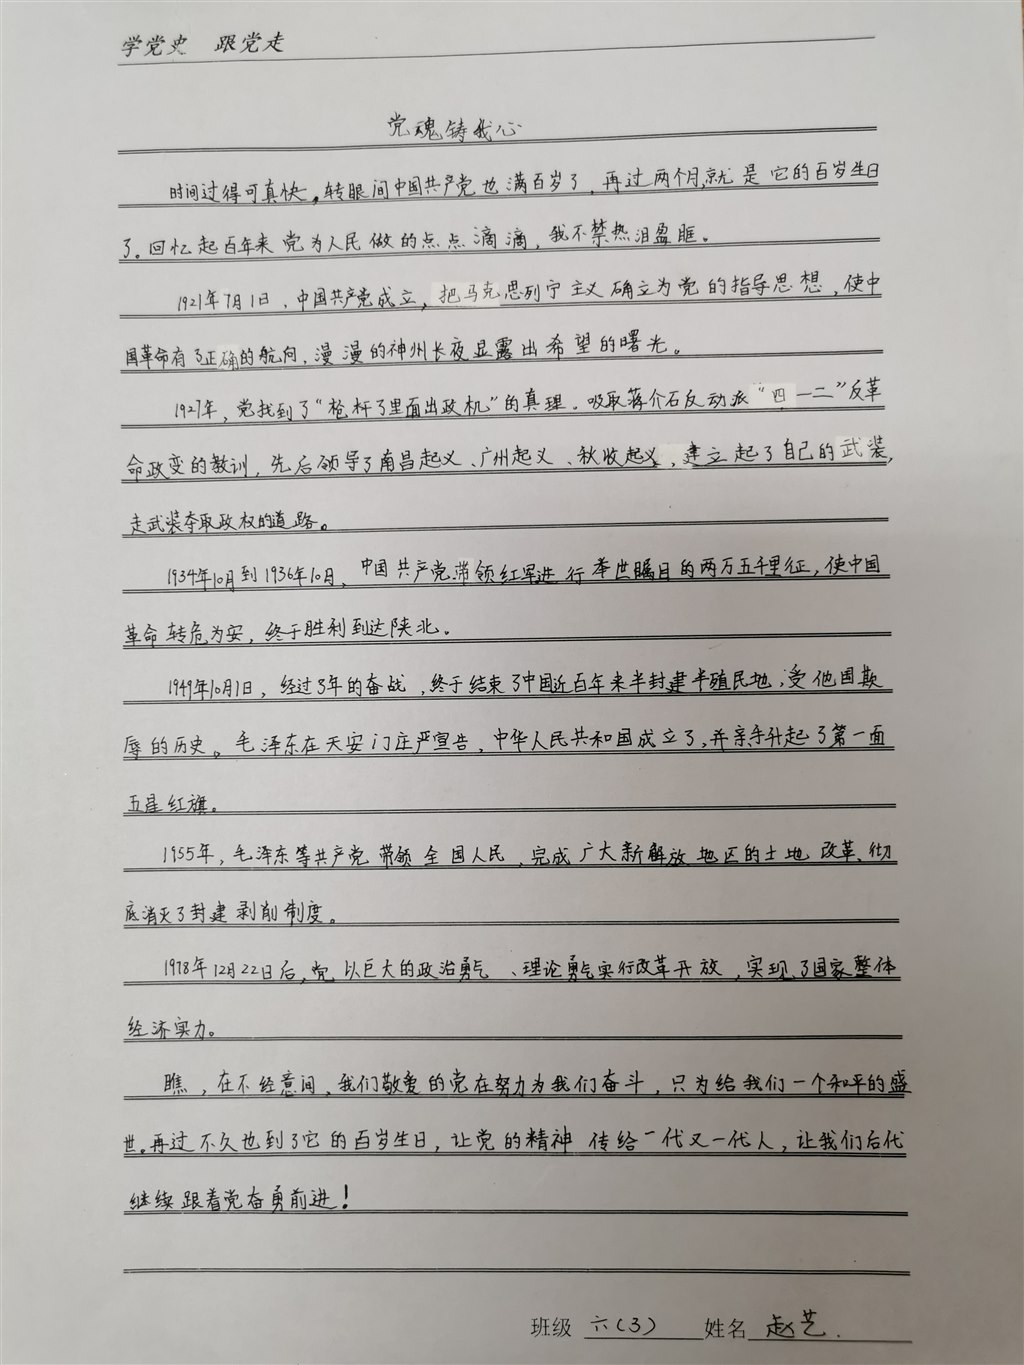 学党史 跟党走
党魂铸我心
时间过得可真快。转眼间中国共产党也满百岁了，再过两个月,就是它的百岁生日
了。回忆起百年来党为人民做的点点滴滴，我不禁热泪盈眶。
1921年7月1日，中国共产党成立，把马克思列宁主义确立为党的指导思想，使中
国革命有了正确的航向，漫漫的神州长夜显露出希望的曙光。
1927年，党找到了“枪杆子里面出政机”的真理。吸取蒋介石反动派“四·一二”反革
命政变的教训，先后领导了南昌起义、广州起义、秋收起义，建立起了自己的武装，
走武装夺取政权的道路。
1934年10月到1936年10月，中国共产党带领红军进行举世瞩目的两万五千里征，使中国
革命转危为安，终于胜利到达陕北。
1949年10月1日，经过3年的奋战，终于结束了中国近百年来半封建半殖民地，受他国欺
辱的历史。毛泽东在天安门庄严宣告，中华人民共和国成立了，并亲手升起了第一面
五星红旗。
1955年，毛泽东等共产党带领全国人民，完成广大新解放地区的土地改革、彻
底消灭了封建剥削制度。
1978年12月22日后，党以巨大的政治勇气、理论勇气实行改革开放，实现了国家整体
经济实力。
瞧，在不经意间，我们敬爱的党在努力为我们奋斗，只为给我们一个和平的盛
世。再过不久也到了它的百岁生日，让党的精神传给一代又一代人，让我们后代
继续跟着党奋勇前进！
班级 六(3) 姓名 赵艺.